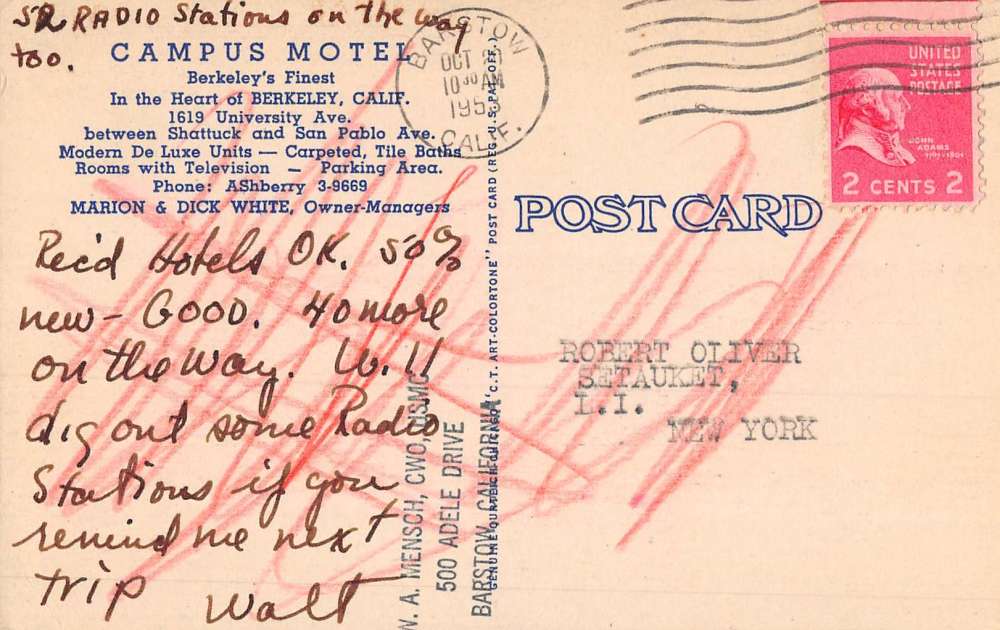 52 RADIO Stations on the way
too.
CAMPUS MOTEL
Berkeley's Finest
In the Heart of BERKELEY, CALIF.
1619 University Ave.
between Shattuck and San Pablo Ave.
Modern De Luxe Units — Carpeted, Tile Baths
Rooms with Television — Parking Area.
Phone: AShberry 3-9669
MARION & DICK WHITE, Owner-Managers
Rec'd Hotels OK. 50%
new - GOOD. 40 more
on the way. Will
dig out some Radio
Stations if you
remind me next
trip Walt
W. A. MENSCH, CWO, USMC
500 ADELE DRIVE
BARSTOW, CALIFORNIA
GENUINE CURTEICH-CHICAGO "C.T. ART-COLORTONE" POST CARD (REG. U.S. PAT. OFF.)
BARSTOW
OCT
10 30 AM
CALIF.
UNITED
STATES
POSTAGE
JOHN
ADAMS
1797-1801
2 CENTS 2
POST CARD
ROBERT OLIVER
SETAUKET,
L.I.
NEW YORK